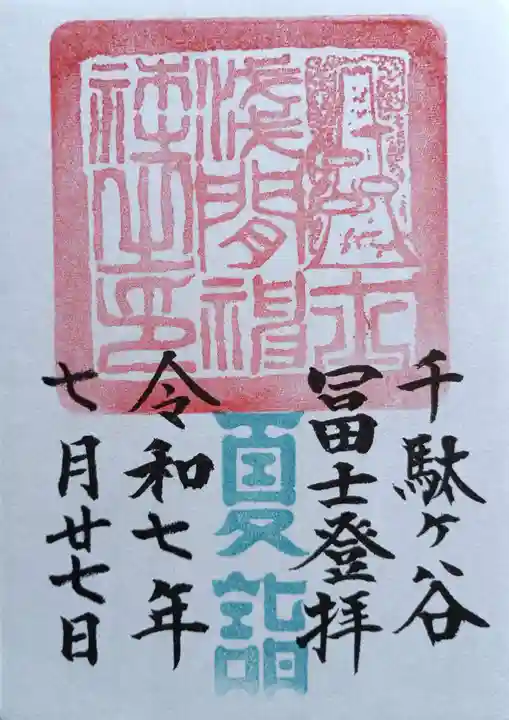 千駄ヶ谷
冨士登拝
夏詣
令和七年
七月廿七日
浅間神
社之印